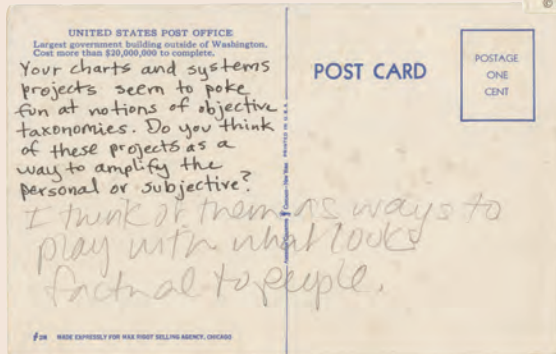 UNITED STATES POST OFFICE
Largest government building outside of Washington.
Cost more than $20,000,000 to complete.
Your charts and systems
projects seem to poke
fun at notions of objective
taxonomies. Do you think
of these projects as a
way to amplify the
personal or subjective?
I think of them as ways to
play with what looks
factual to people.
MADE EXPRESSLY FOR MAX RIGOT SELLING AGENCY, CHICAGO
PRINTED IN U.S.A.
POST CARD
POSTAGE
ONE
CENT
©